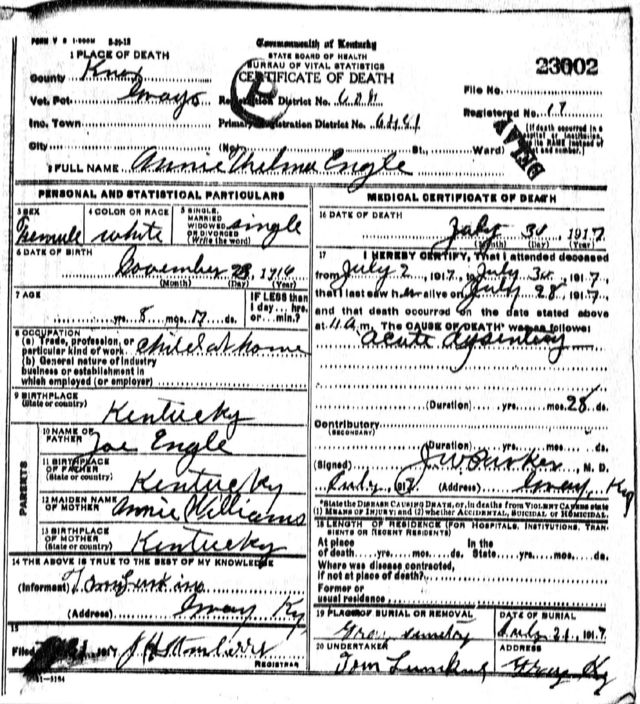 FORM V S 1-200M 8-20-15
Commonwealth of Kentucky
STATE BOARD OF HEALTH
BUREAU OF VITAL STATISTICS
CERTIFICATE OF DEATH
23002
1 PLACE OF DEATH
County Knox
Vot. Pct. Grays Registration District No.
Inc. Town Primary Registration District No.
City (No. St., Ward)
File No.
Registered No.
(If death occurred in a
hospital or institution,
give its NAME instead of
street and number.)
DELAY
2 FULL NAME Annie Thelma Engle
PERSONAL AND STATISTICAL PARTICULARS
3 SEX Femule
4 COLOR OR RACE white
5 SINGLE, MARRIED WIDOWED OR DIVORCED (Write the word) single
6 DATE OF BIRTH
November 28, 1916
(Month) (Day) (Year)
7 AGE
yrs. 8 mos. ds.
IF LESS than
1 day... hrs.
or... min.?
8 OCCUPATION
(a) Trade, profession, or
particular kind of work child at home
(b) General nature of industry
business or establishment in
which employed (or employer)
9 BIRTHPLACE
(State or country) Kentucky
PARENTS
10 NAME OF FATHER Joe Engle
11 BIRTHPLACE OF FATHER (State or country) Kentucky
12 MAIDEN NAME OF MOTHER Annie Williams
13 BIRTHPLACE OF MOTHER (State or country) Kentucky
14 THE ABOVE IS TRUE TO THE BEST OF MY KNOWLEDGE
(Informant) Tom
(Address) Gray Ky
15
Filed 1917
REGISTRAR
11-3184
MEDICAL CERTIFICATE OF DEATH
16 DATE OF DEATH
July 1917
(Month) (Day) (Year)
17 I HEREBY CERTIFY, That I attended deceased
from July 2, 1917, to July 1917
that I last saw h alive on July 28, 1917,
and that death occurred on the date stated above
at 11 a.m. The CAUSE OF DEATH* was as follows:
acute dysentery
(Duration) yrs. mos. 28 ds.
Contributory
(SECONDARY)
(Duration) yrs. mos. ds.
(Signed) M. D.
191 (Address) Gray Ky
*State the DISEASE CAUSING DEATH, or, in deaths from VIOLENT CAUSES state
(1) MEANS OF INJURY; and (2) whether ACCIDENTAL, SUICIDAL or HOMICIDAL
18 LENGTH OF RESIDENCE (FOR HOSPITALS, INSTITUTIONS, TRANSIENTS OR RECENT RESIDENTS)
At place In the
of death yrs. mos. ds. State yrs. mos. ds.
Where was disease contracted,
if not at place of death?
Former or
usual residence
19 PLACE OF BURIAL OR REMOVAL
Gray
DATE OF BURIAL
1917
20 UNDERTAKER
Tom
ADDRESS
Gray Ky